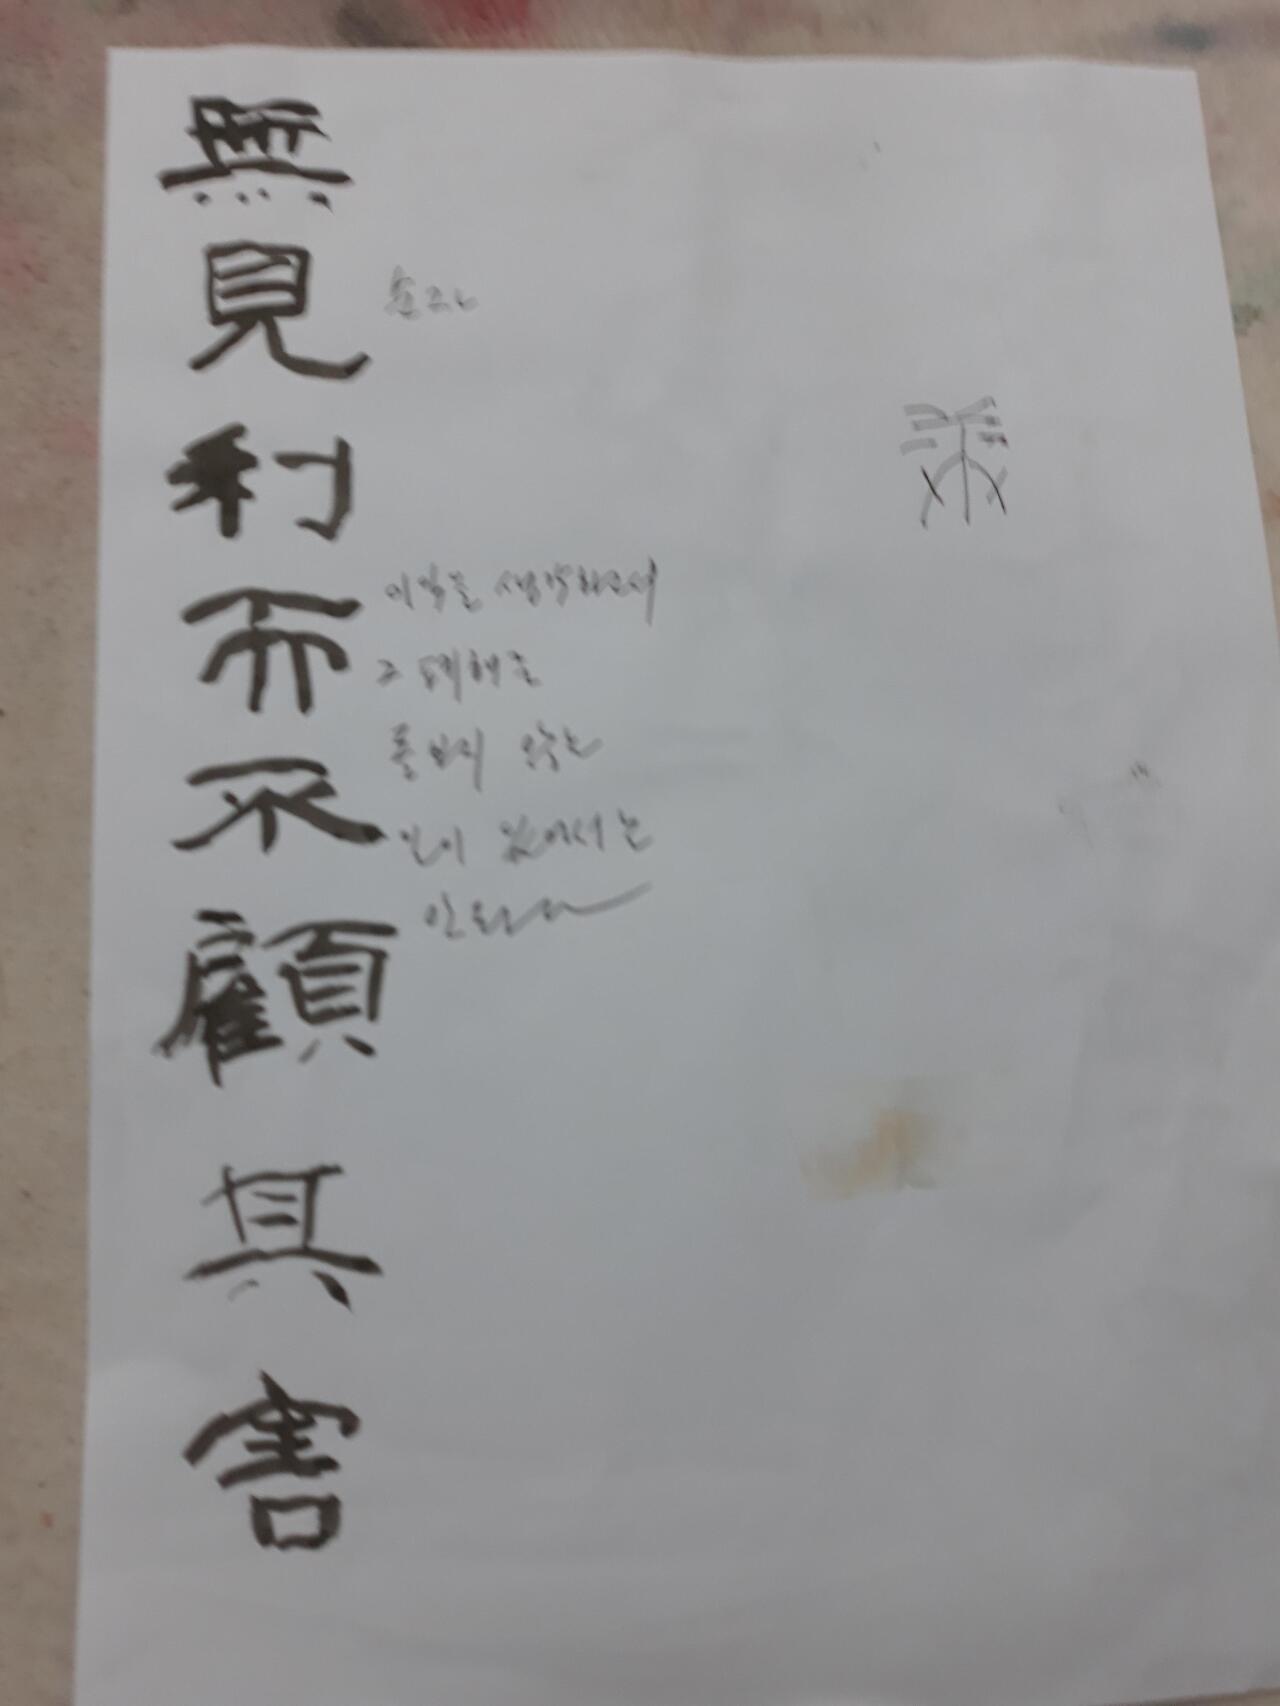 無見利而不顧其害
순자
이익을 생각하고서
그 폐해를
돌보지 않는
일이 있어서는
안된다